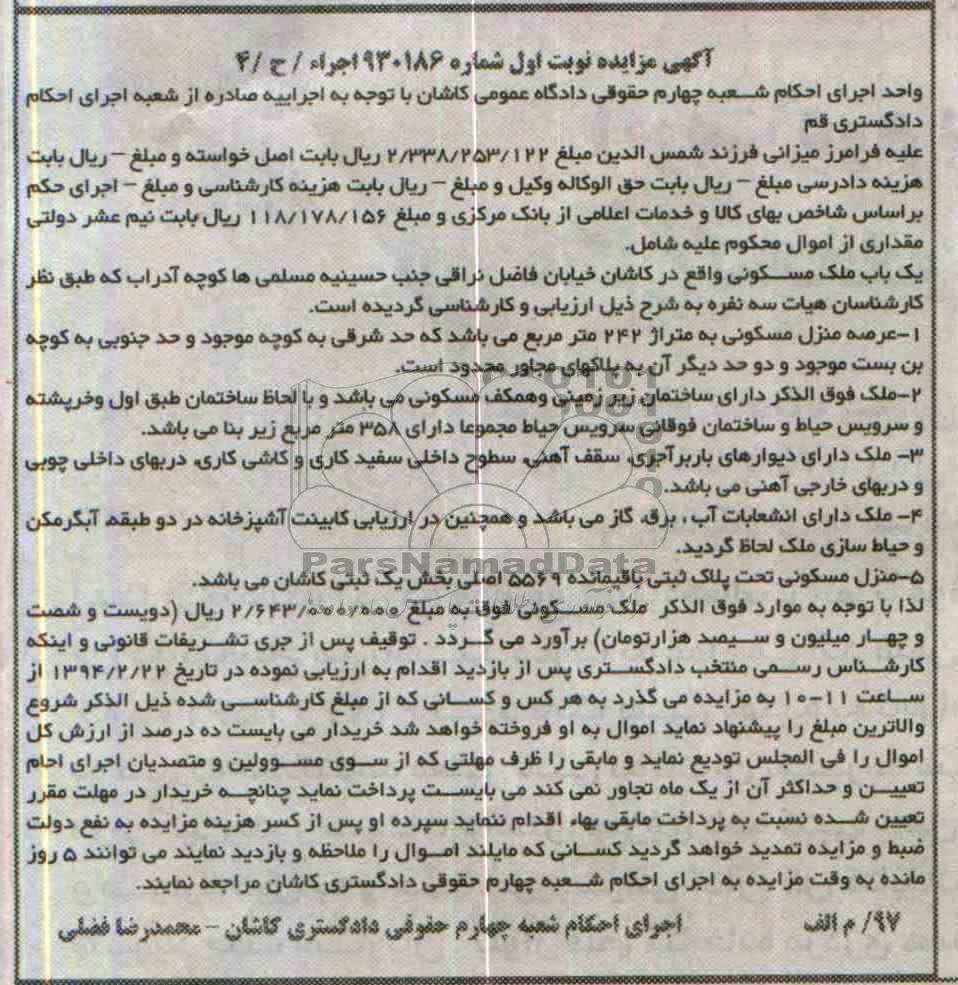 آگهی مزایده نوبت اول شماره ۹۳۰۱۸۶ اجراء / ح /۴
واحد اجرای احکام شعبه چهارم حقوقی دادگاه عمومی کاشان با توجه به اجراییه صادره از شعبه اجرای احکام
دادگستری قم
علیه فرامرز میزانی فرزند شمس الدین مبلغ ۲/۳۳۸/۲۵۳/۱۲۲ ریال بابت اصل خواسته و مبلغ – ریال بابت
هزینه دادرسی مبلغ – ریال بابت حق الوکاله وکیل و مبلغ – ریال بابت هزینه کارشناسی و مبلغ – اجرای حکم
براساس شاخص بهای کالا و خدمات اعلامی از بانک مرکزی و مبلغ ۱۱۸/۱۷۸/۱۵۶ ریال بابت نیم عشر دولتی
مقداری از اموال محکوم علیه شامل.
یک باب ملک مسکونی واقع در کاشان خیابان فاضل نراقی جنب حسینیه مسلمی ها کوچه آدراب که طبق نظر
کارشناسان هیات سه نفره به شرح ذیل ارزیابی و کارشناسی گردیده است.
۱-عرصه منزل مسکونی به متراژ ۲۴۲ متر مربع می باشد که حد شرقی به کوچه موجود و حد جنوبی به کوچه
بن بست موجود و دو حد دیگر آن به پلاکهای مجاور محدود است.
۲-ملک فوق الذکر دارای ساختمان زیر زمینی وهمکف مسکونی می باشد و با لحاظ ساختمان طبق اول وخرپشته
و سرویس حیاط و ساختمان فوقانی سرویس حیاط مجموعا دارای ۳۵۸ متر مربع زیر بنا می باشد.
۳- ملک دارای دیوارهای باربرآجری، سقف آهنی، سطوح داخلی سفید کاری و کاشی کاری، دربهای داخلی چوبی
و دربهای خارجی آهنی می باشد.
۴- ملک دارای انشعابات آب ، برق، گاز می باشد و همچنین در ارزیابی کابینت آشپزخانه در دو طبقه، آبگرمکن
و حیاط سازی ملک لحاظ گردید.
ParsNamadData
۵-منزل مسکونی تحت پلاک ثبتی باقیمانده ۵۵۶۹ اصلی بخش یک ثبتی کاشان می باشد.
لذا با توجه به موارد فوق الذکر ملک مسکونی فوق به مبلغ ۲/۶۴۳/۰۰۰/۰۰۰ ریال (دویست و شصت
و چهار میلیون و سیصد هزارتومان) برآورد می گردد . توقیف پس از جری تشریفات قانونی و اینکه
کارشناس رسمی منتخب دادگستری پس از بازدید اقدام به ارزیابی نموده در تاریخ ۱۳۹۴/۲/۲۲ از
ساعت ۱۱-۱۰ به مزایده می گذرد به هر کس و کسانی که از مبلغ کارشناسی شده ذیل الذکر شروع
والاترین مبلغ را پیشنهاد نماید اموال به او فروخته خواهد شد خریدار می بایست ده درصد از ارزش کل
اموال را فی المجلس تودیع نماید و مابقی را ظرف مهلتی که از سوی مسوولین و متصدیان اجرای احام
تعیین و حداکثر آن از یک ماه تجاوز نمی کند می بایست پرداخت نماید چنانچه خریدار در مهلت مقرر
تعیین شده نسبت به پرداخت مابقی بهاء اقدام ننماید سپرده او پس از کسر هزینه مزایده به نفع دولت
ضبط و مزایده تمدید خواهد گردید کسانی که مایلند اموال را ملاحظه و بازدید نمایند می توانند ۵ روز
مانده به وقت مزایده به اجرای احکام شعبه چهارم حقوقی دادگستری کاشان مراجعه نمایند.
۹۷/ م الف اجرای احکام شعبه چهارم حقوقی دادگستری کاشان – محمدرضا فضلی